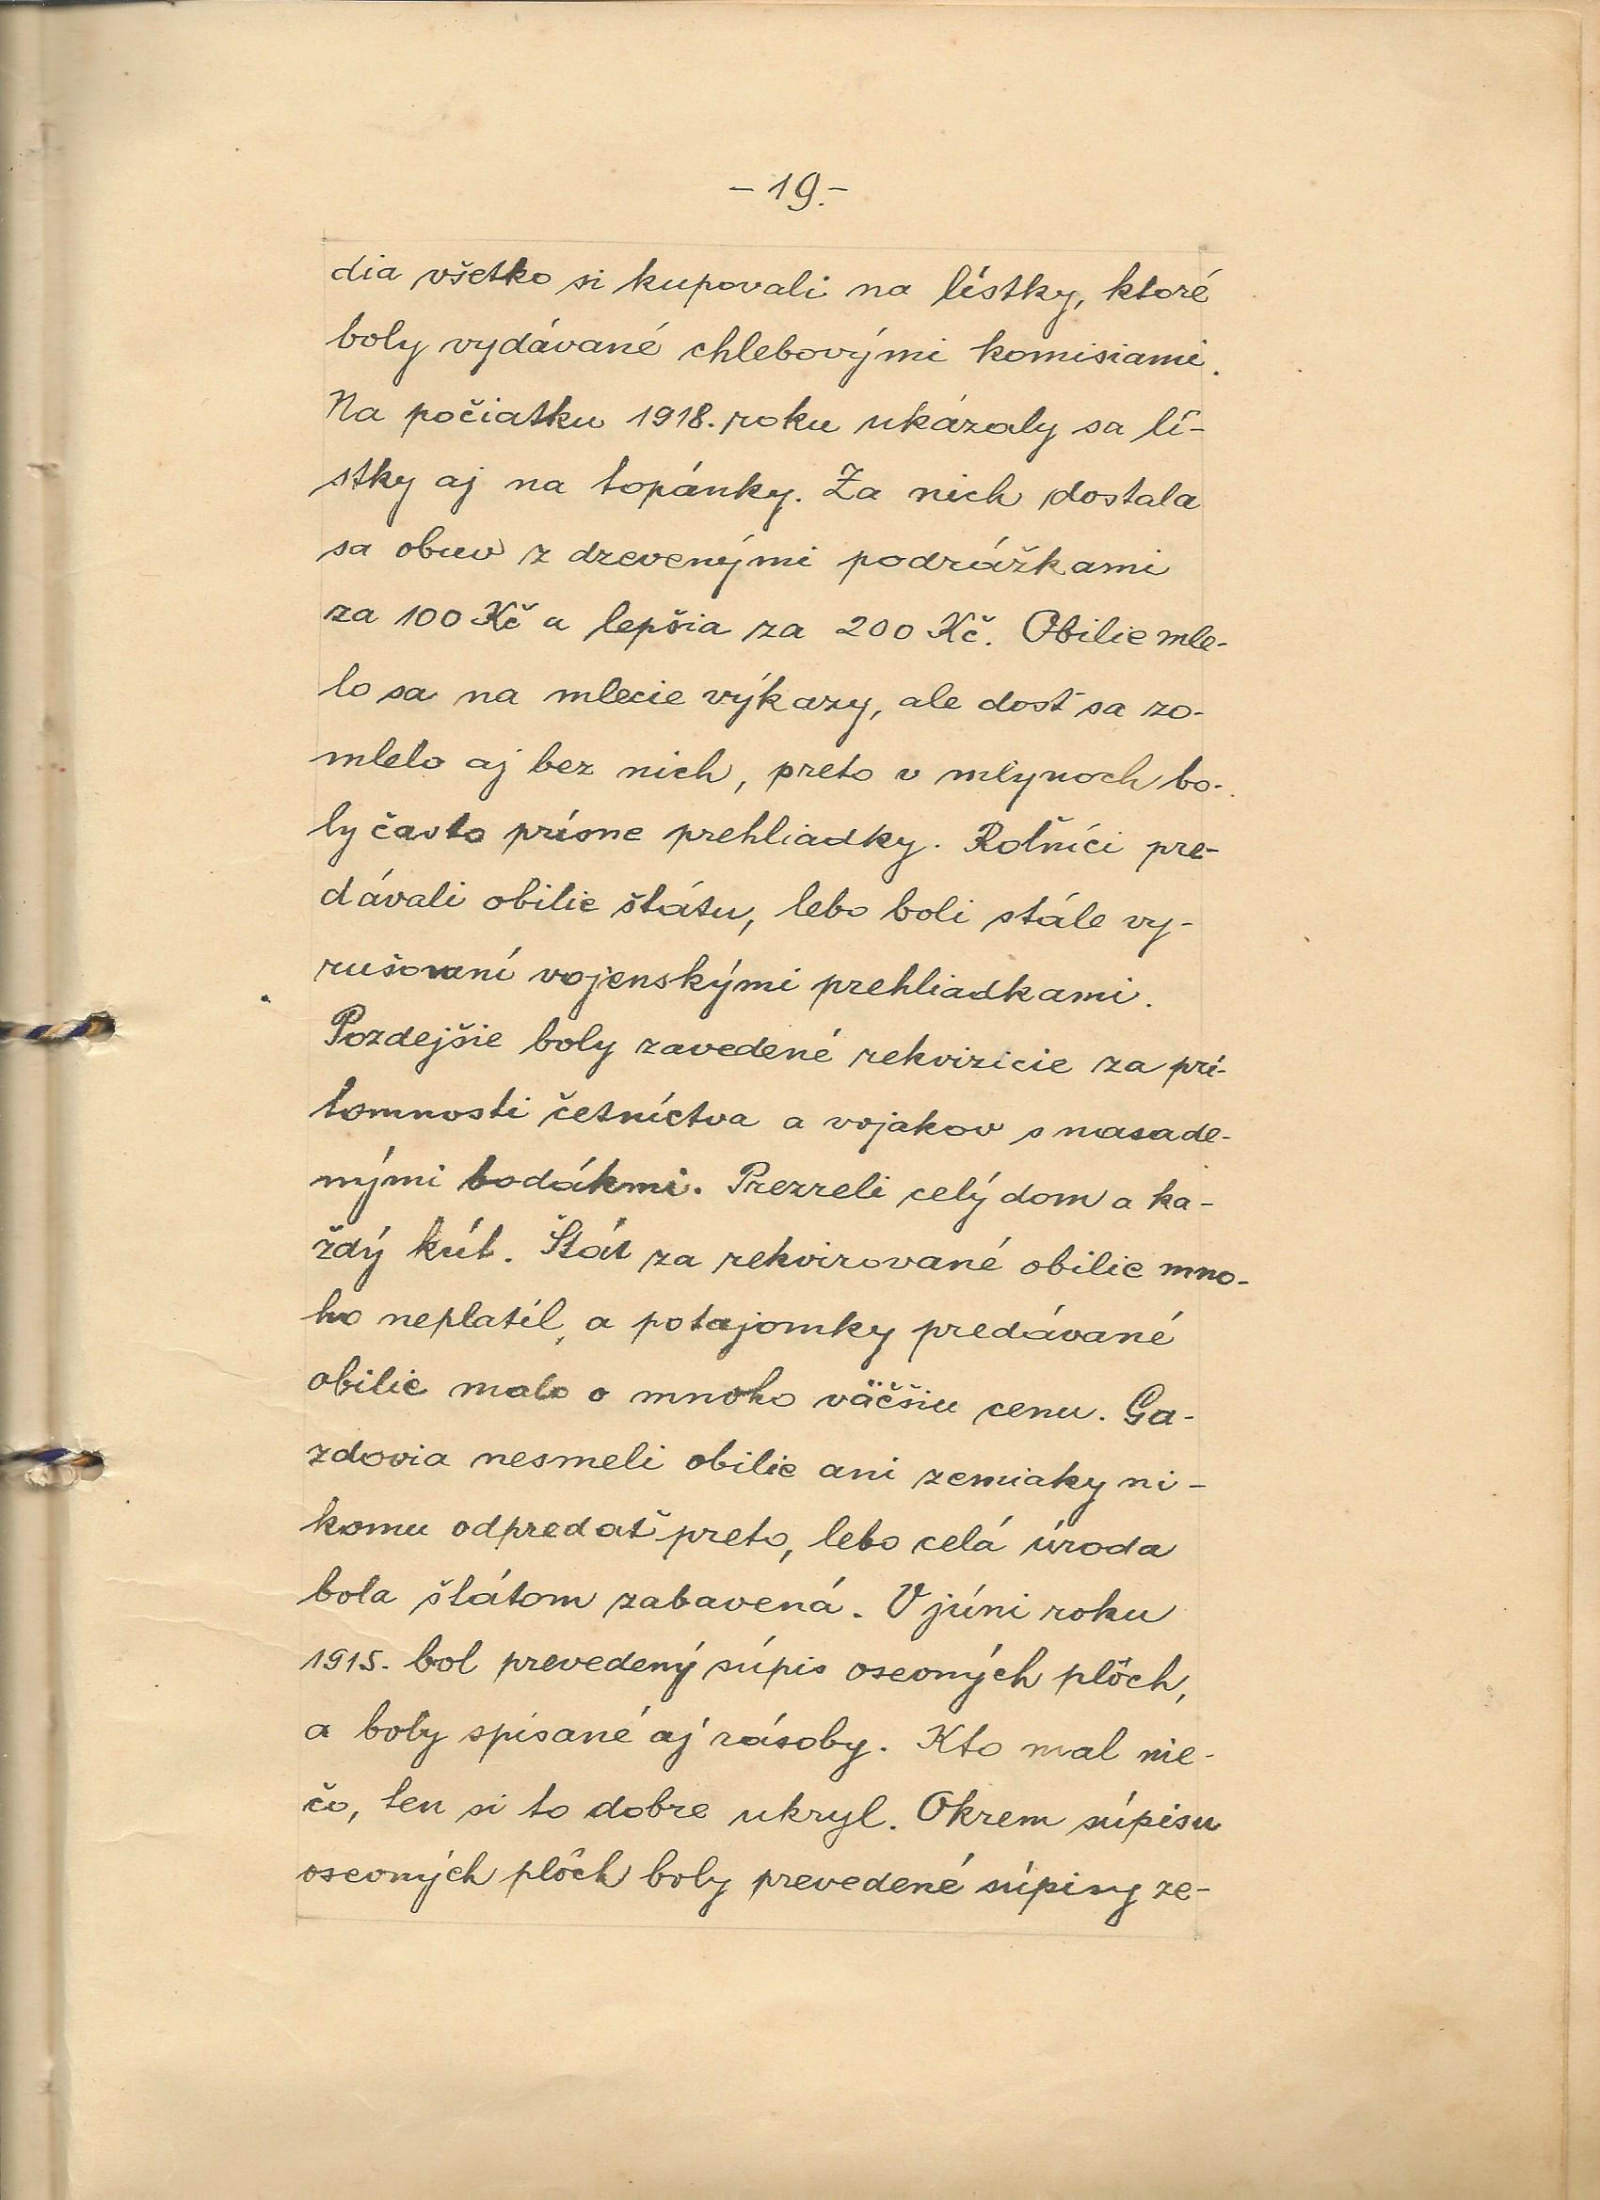 - 19.-
dia všetko si kupovali na lístky, ktoré
boly vydávané chlebovými komisiami.
Na počiatku 1918. roku ukázaly sa lí-
stky aj na topánky. Za nich dostala
sa obuv z drevenými podrážkami
za 100 Kč a lepšia za 200 Kč. Obilie mle-
lo sa na mlecie výkazy, ale dosť sa zo-
mlelo aj bez nich, preto v mlynoch bo-
ly často prísne prehliadky. Roľníci pre-
dávali obilie štátu, lebo boli stále vy-
rušovaní vojenskými prehliadkami.
Pozdejšie boly zavedené rekvizície za prí-
tomnosti četníctva a vojakov s nasade-
nými bodákmi. Prezreli celý dom a ka-
ždý kút. Štát za rekvirované obilie mno-
ho neplatil, a potajomky predávané
obilie malo o mnoho väčšiu cenu. Ga-
zdovia nesmeli obilie ani zemiaky ni-
komu odpredať preto, lebo celá úroda
bola štátom zabavená. V júni roku
1915. bol prevedený súpis osevných plôch,
a boly spísané aj zásoby. Kto mal nie-
čo, ten si to dobre ukryl. Okrem súpisu
osevných plôch boly prevedené súpisy ze-